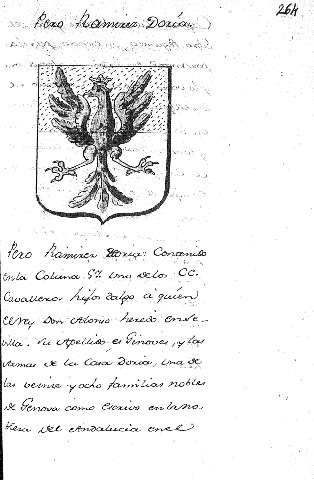 264
Pero Ramirez Doria.
Pero Ramirez Doria: Contenido
en la Coluna 5ª. Uno de los CC.
Cavalleros hijos dalgo a quien
el Rey Don Alonso heredo en Se-
villa. Su Apellido es Ginoves, y las
Armas de la Casa Doria, una de
las veinte y ocho familias nobles
de Genova como escrivo en la no-
bleza del Andalucia en el